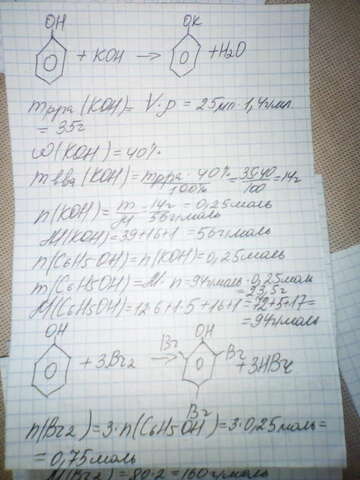 OH OK
+ KOH → + H2O
mр-ра (KOH) = V·ρ = 25мл · 1,4г/мл
= 35г
ω(KOH) = 40%
mв-ва (KOH) = mр-ра · 40% / 100% = 35·40 / 100 = 14г
n(KOH) = m / M = 14г / 56г/моль = 0,25моль
M(KOH) = 39+16+1 = 56г/моль
n(C6H5OH) = n(KOH) = 0,25моль
m(C6H5OH) = M · n = 94г/моль · 0,25моль
= 23,5г
M(C6H5OH) = 12·6+1·5+16+1 = 72+5+17 =
= 94г/моль
OH Br OH Br
+ 3Br2 → + 3HBr
Br
n(Br2) = 3·n(C6H5OH) = 3·0,25моль =
= 0,75моль
M(Br2) = 80·2 = 160г/моль